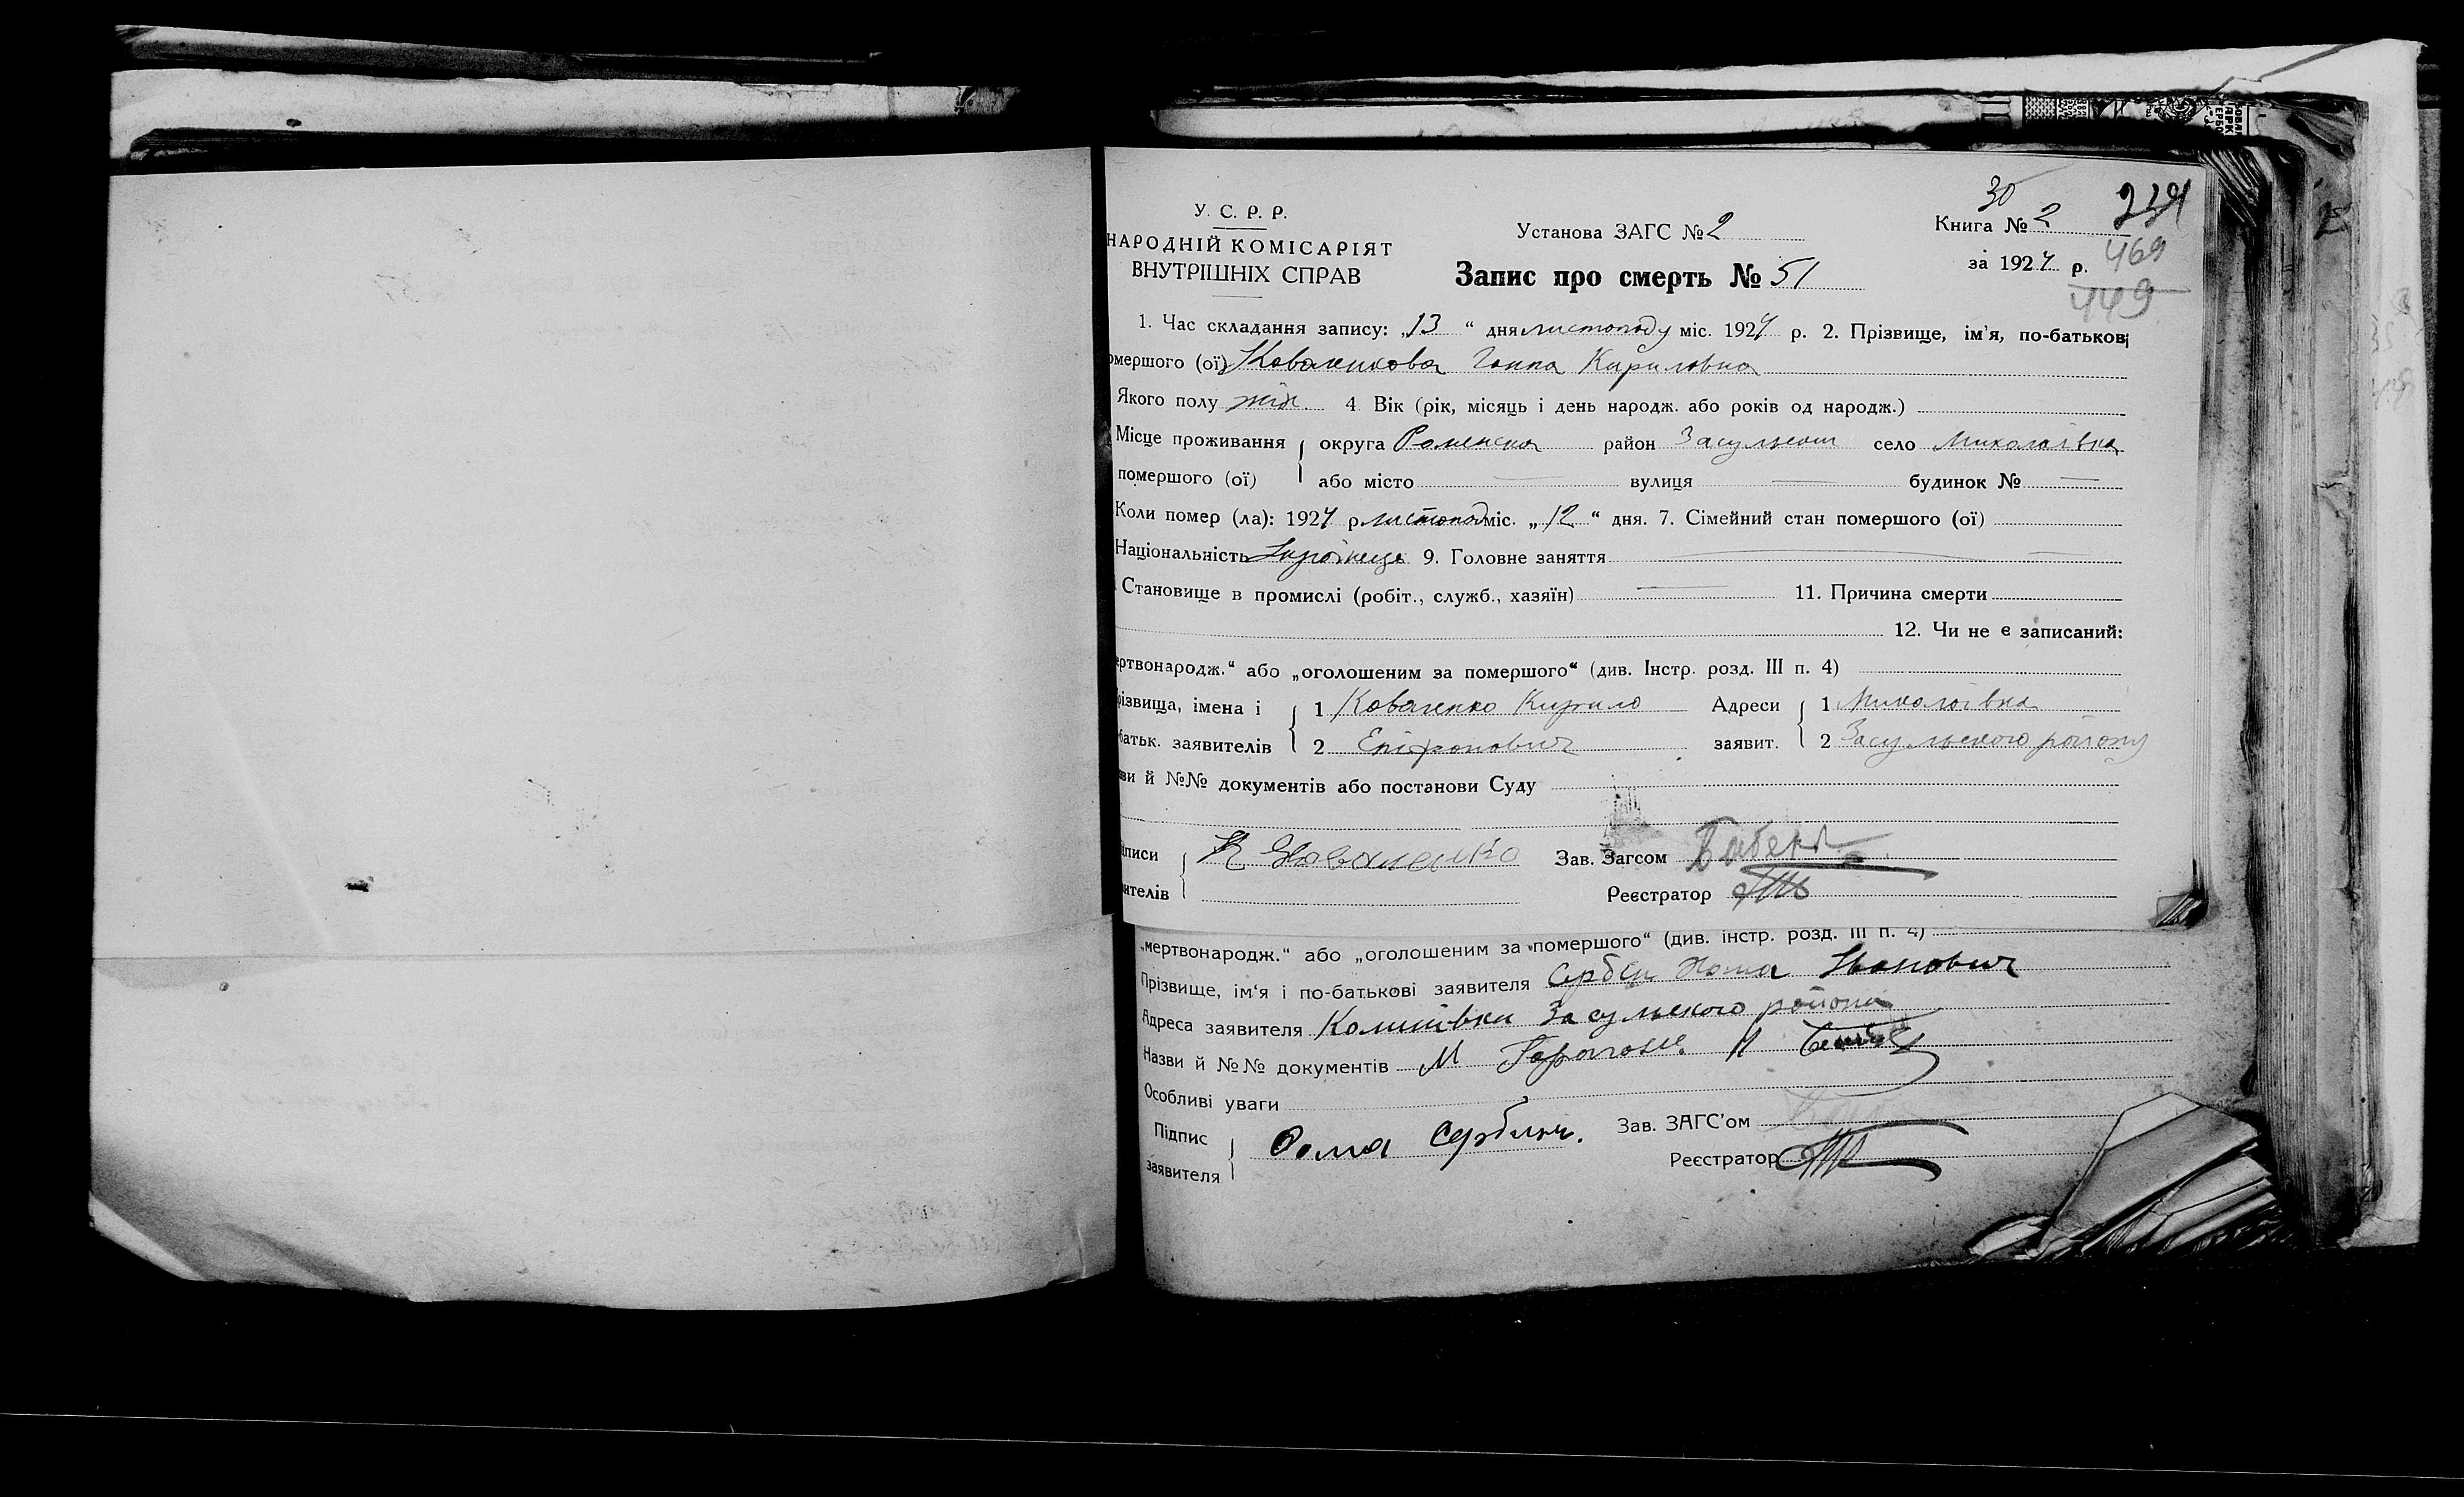 30
У. С. Р. Р.
Установа ЗАГС № 2
Книга № 2
НАРОДНІЙ КОМІСАРІЯТ
ВНУТРІШНІХ СПРАВ
Запис про смерть № 51
за 1924 р.
469
449
1. Час складання запису: „13“ дня листопаду міс. 1924 р. 2. Прізвище, ім'я, по-батькові
омершого (ої) Коваленкова Ганна Кириловна
Якого полу жін. 4. Вік (рік, місяць і день народж. або років од народж.)
Місце проживання округа Роменска район Засульськ село Миколаївка
помершого (ої) або місто — вулиця — будинок № —
Коли помер (ла): 1924 р листопад міс. „12“ дня. 7. Сімейний стан помершого (ої)
Національність 9. Головне заняття —
Становище в промислі (робіт., служб., хазяїн) — 11. Причина смерти
12. Чи не є записаний:
ертвонародж.“ або „оголошеним за помершого“ (див. Інстр. розд. III п. 4)
різвища, імена і 1 Коваленко Кирило Адреси 1 Миколаївка
батьк. заявителів 2 Епіфанович заявит. 2 Засульського району
ви й №№ документів або постанови Суду
писи К Коваленко Зав. Загсом
ителів Реєстратор
„мертвонародж.“ або „оголошеним за помершого“ (див. інстр. розд. III п. 4)
Прізвище, ім'я і по-батькові заявителя Сербин Хома Іванович
Адреса заявителя Засульского району
Назви й №№ документів
Особливі уваги
Підпис Фома Сербин. Зав. ЗАГС'ом
заявителя Реєстратор